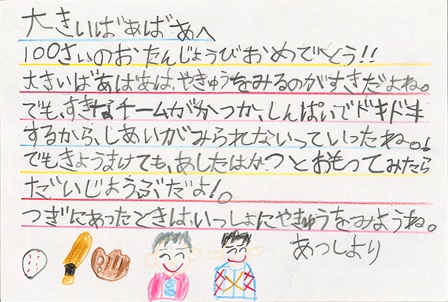 大きいばあばあへ
100さいのおたんじょうびおめでとう!!
大きいばあばあは、やきゅうをみるのがすきだよね。
でも、すきなチームがかつか、しんぱいでドキドキ
するから、しあいがみられないっていったね。!
でもきょうまけても、あしたはかつとおもってみたら
だいじょうぶだよ!。
つぎにあったときはいっしょにやきゅうをみようね。
あつしより